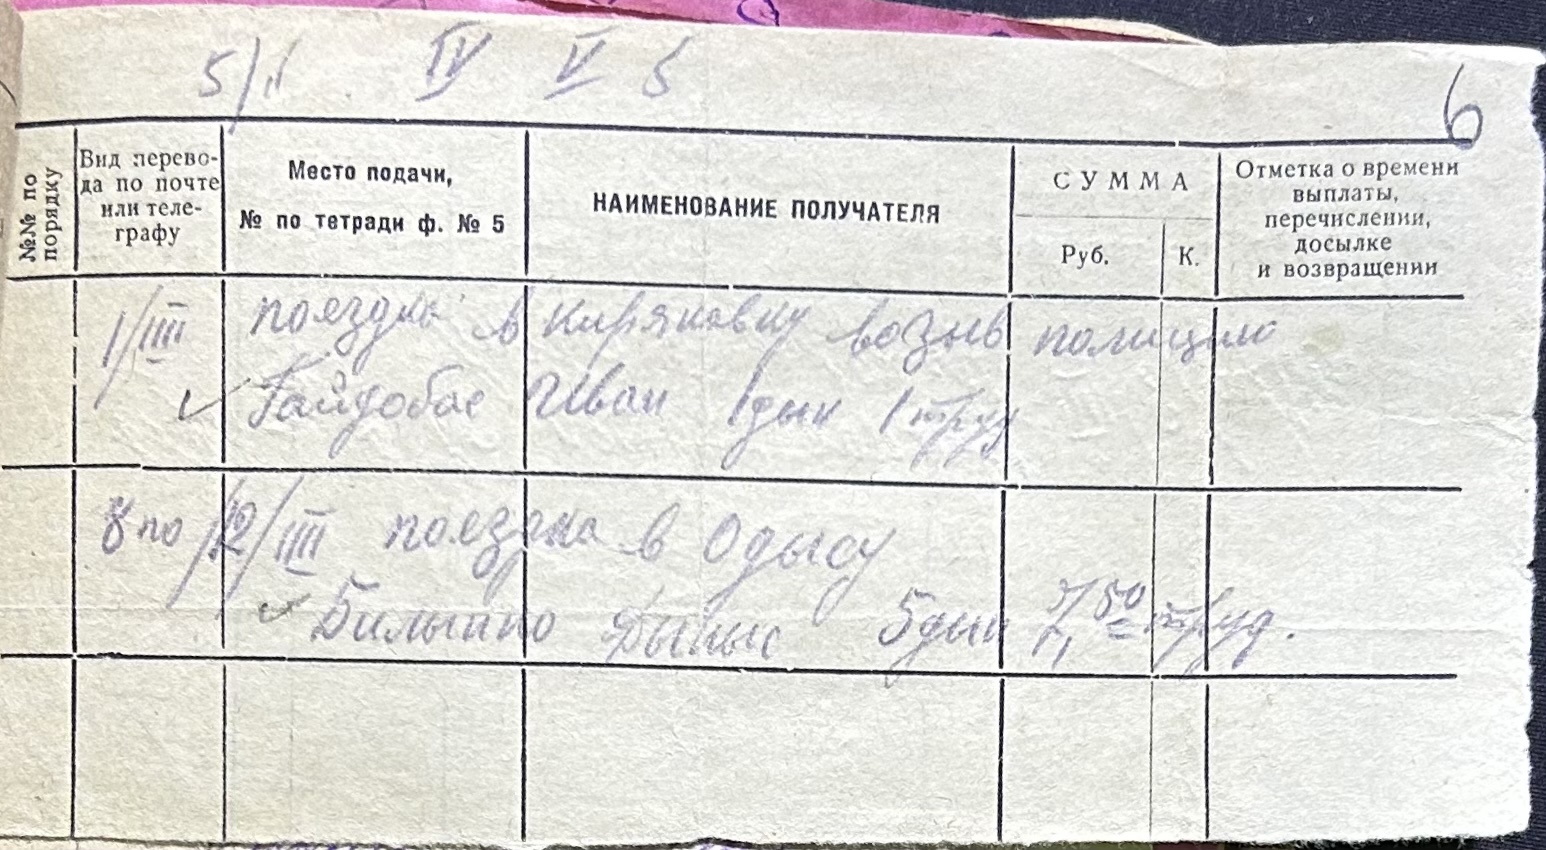 5/II IV V 5
6
№№ по порядку
Вид перево-
да по почте
или теле-
графу
Место подачи,
№ по тетради ф. № 5
НАИМЕНОВАНИЕ ПОЛУЧАТЕЛЯ
СУММА
Руб.
К.
Отметка о времени
выплаты,
перечислении,
досылке
и возвращении
1/III поездка в Киряковку возыв полицию
Гайдабас Иван 1 дын 1 труд
8 по 12/III поездка в Одысу
Билыпко Диныс 5 дын 7,50 труд.